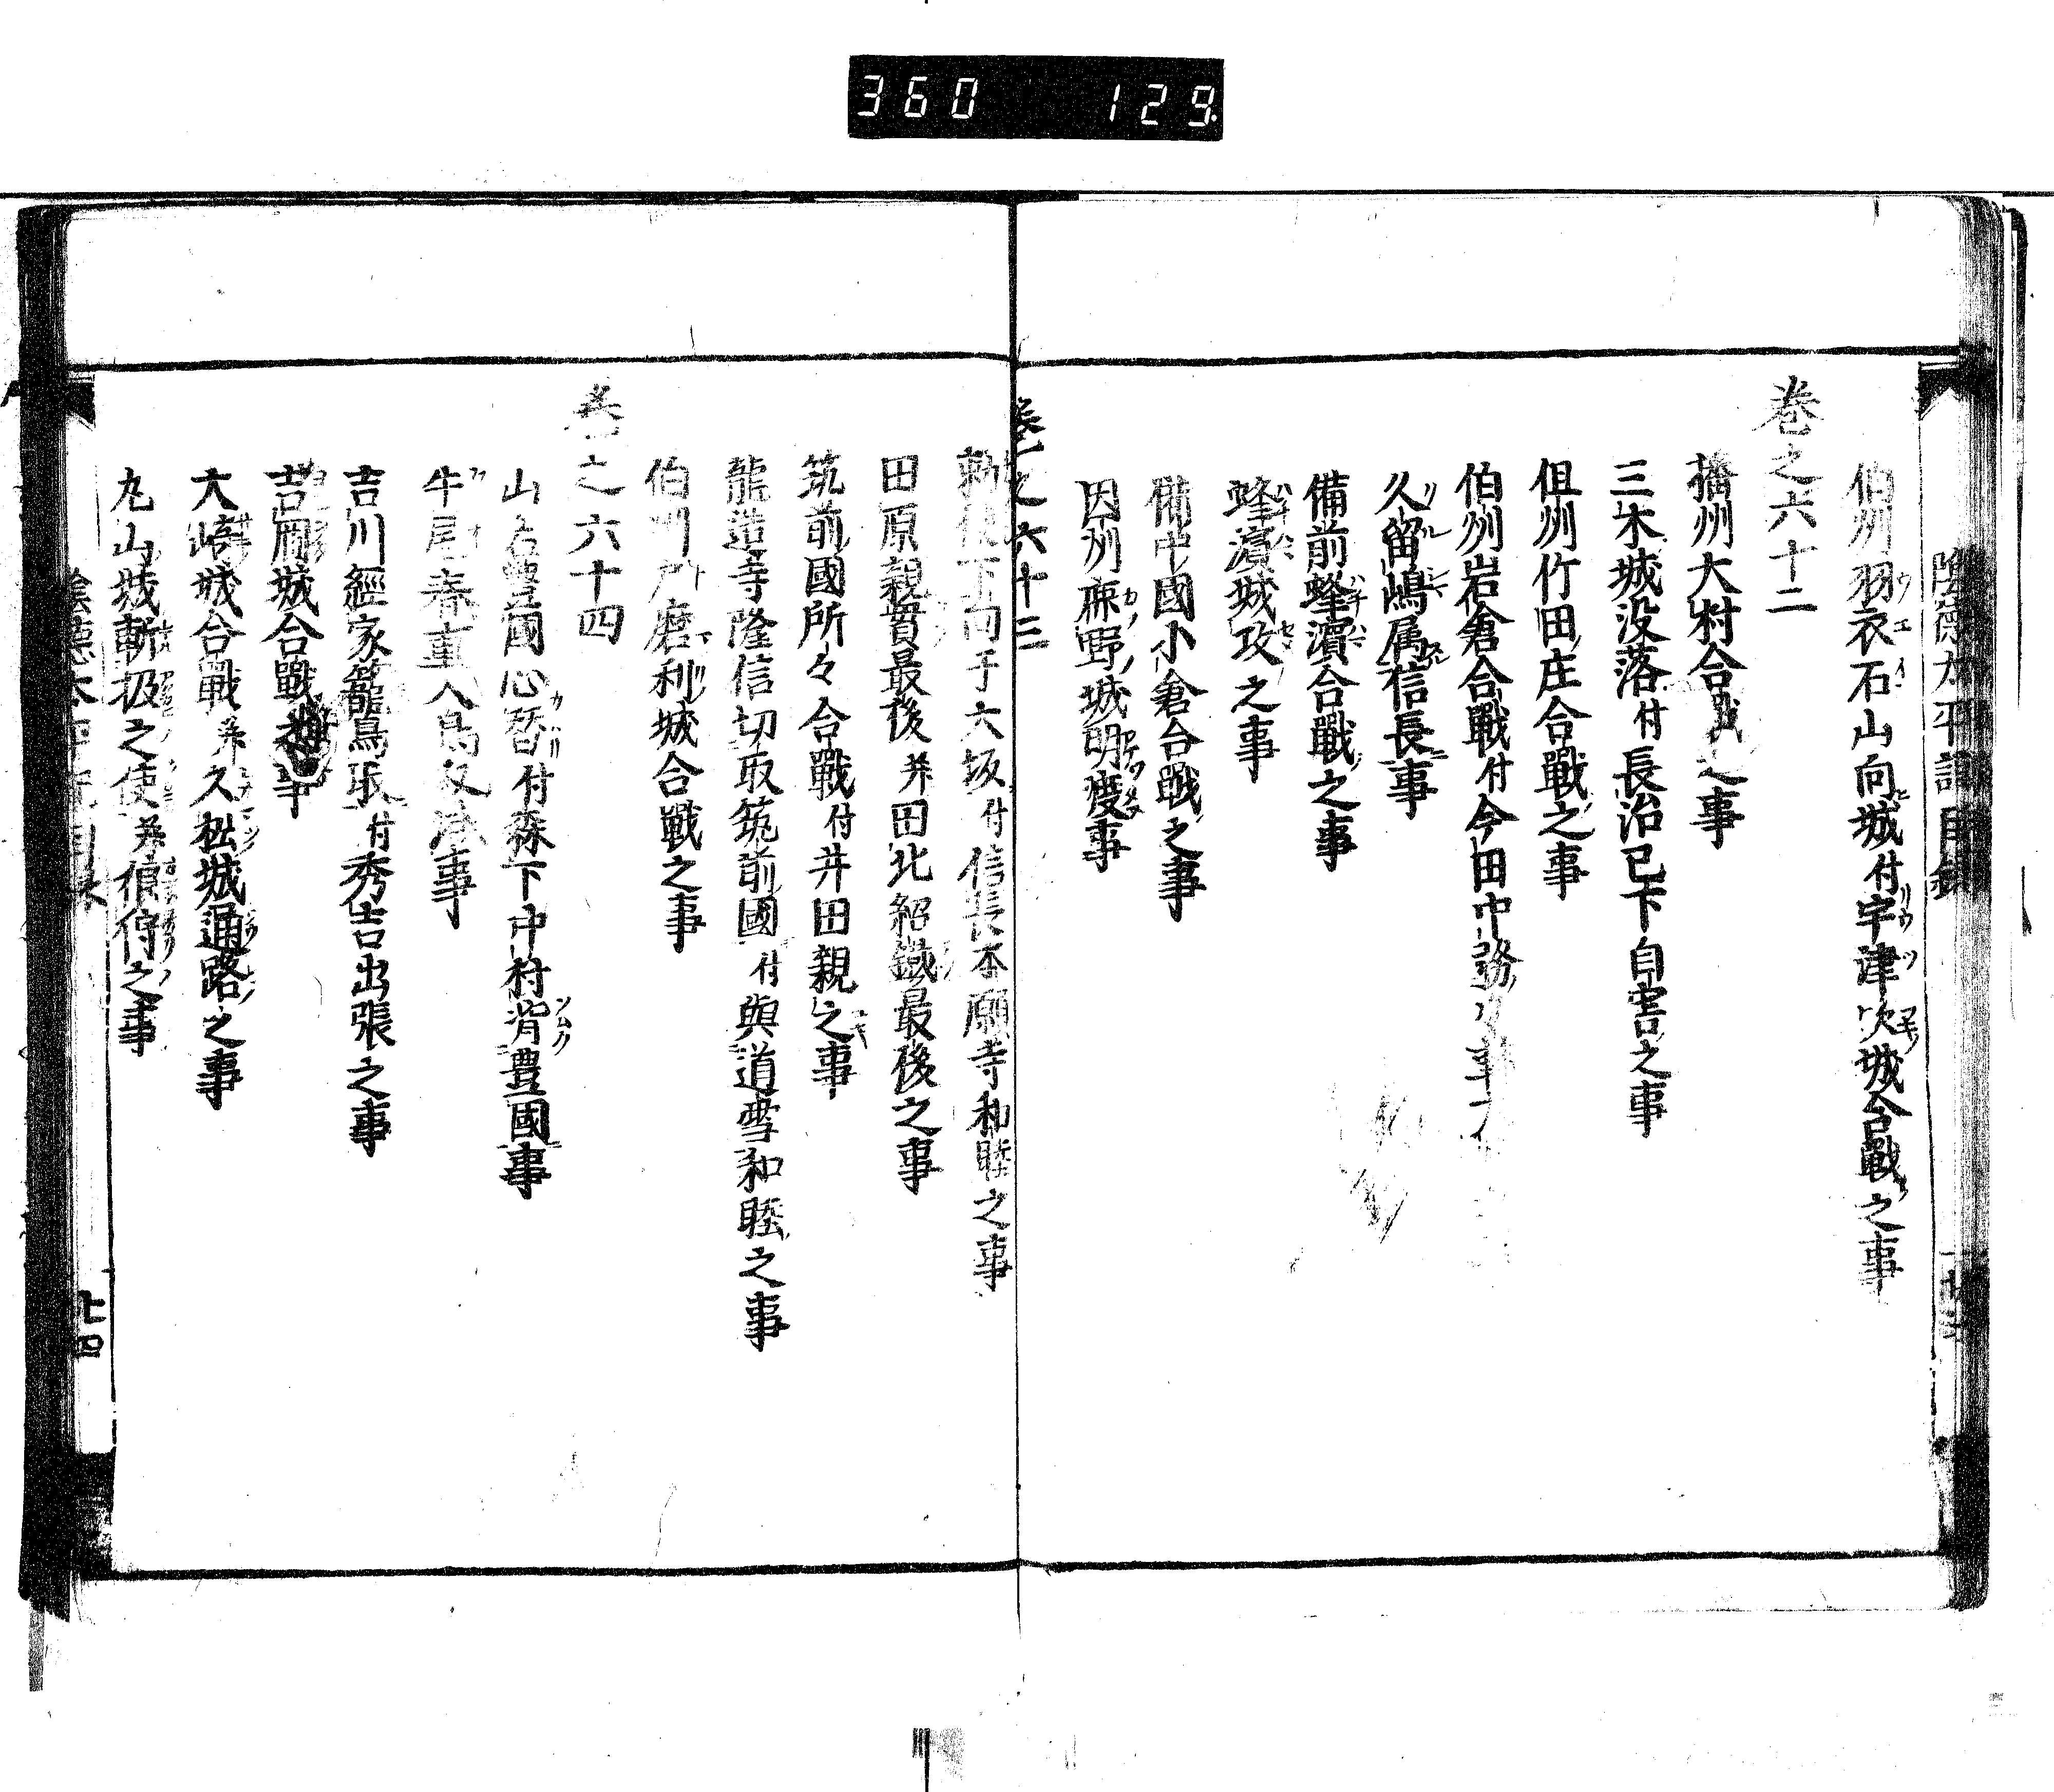 360 129
陰徳太平記目録
伯州羽衣石山向城付宇津吹城合戰之事
巻之六十二
播州大村合戰之事
三木城没落付長治已下自害之事
但州竹田庄合戰之事
伯州岩倉合戰付今田中務
久留嶋属信長事
備前蜂濵合戰之事
蜂濵城攻之事
備中國小倉合戰之事
因州鹿野城明渡事
巻之六十三
勅使下向于大坂付信長本願寺和睦之事
田原親貫最後并田北紹鐵最後之事
筑前國所々合戰付井田親之事
龍造寺隆信切取筑前國付與道雪和睦之事
伯州戸磨利城合戰之事
巻之六十四
山名豊國心替付森下中村背豊國事
牛尾春重入鳥取落事
吉川經家籠鳥取付秀吉出張之事
吉岡城合戰事
大崎城合戰并久松城通路之事
丸山城斬扱之使并偵狩之事
陰徳太平記目録
上四